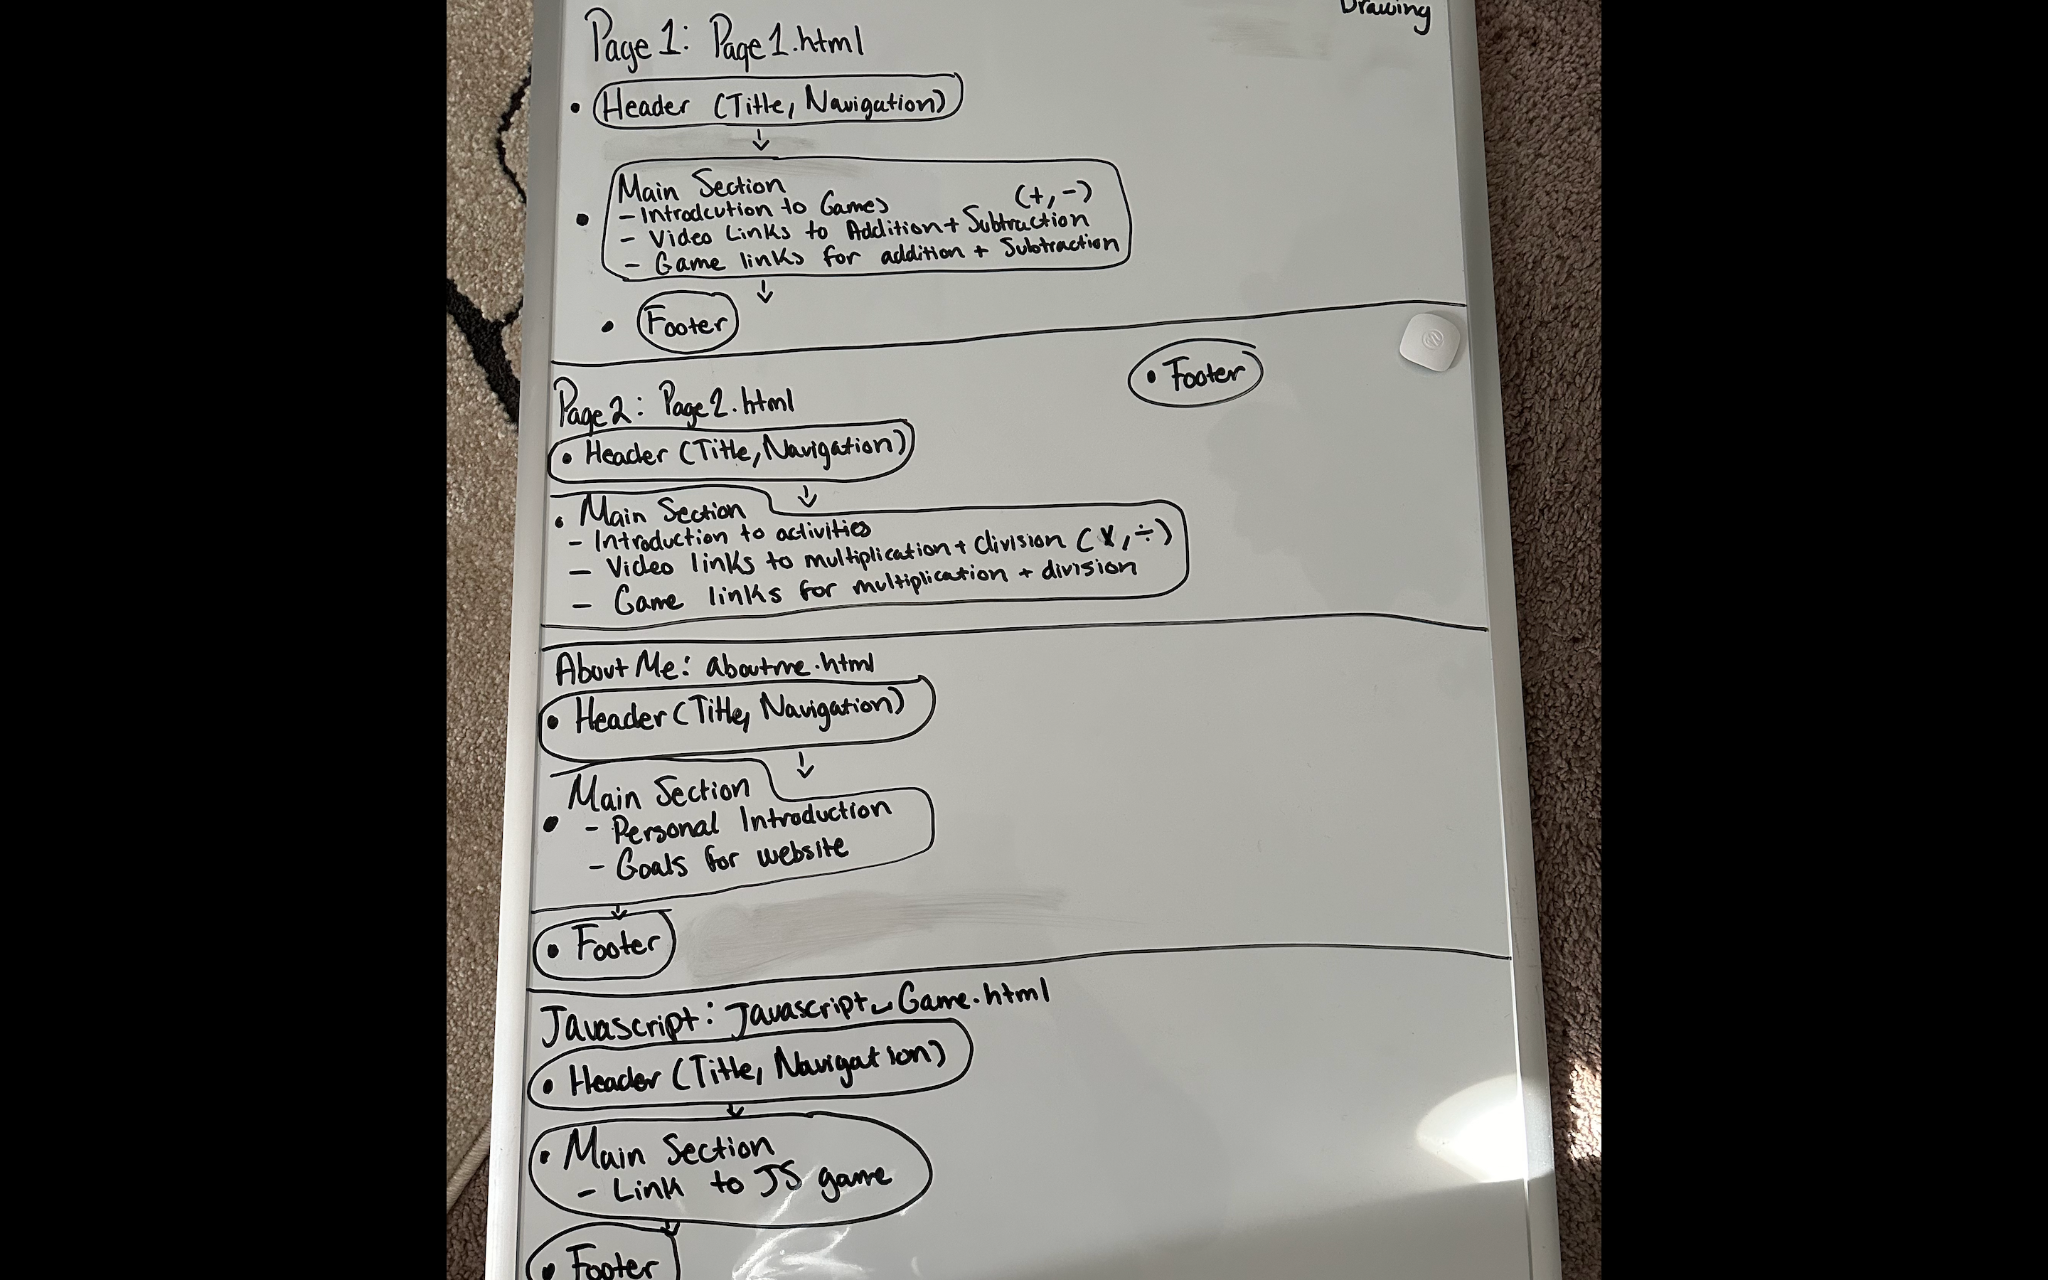 Drawing
Page 1: Page1.html
• Header (Title, Navigation)
↓
• Main Section
- Introdcution to Games (+, -)
- Video Links to Addition + Subtraction
- Game links for addition + Subtraction
↓
• Footer
Page 2: Page2.html
• Header (Title, Navigation)
↓
• Main Section
- Introduction to activities
- Video links to multiplication + division (x, ÷)
- Game links for multiplication + division
• Footer
About Me: aboutme.html
• Header (Title, Navigation)
↓
• Main Section
- Personal Introduction
- Goals for website
↓
• Footer
Javascript: Javascript_Game.html
• Header (Title, Navigation)
↓
• Main Section
- Link to JS game
↓
• Footer